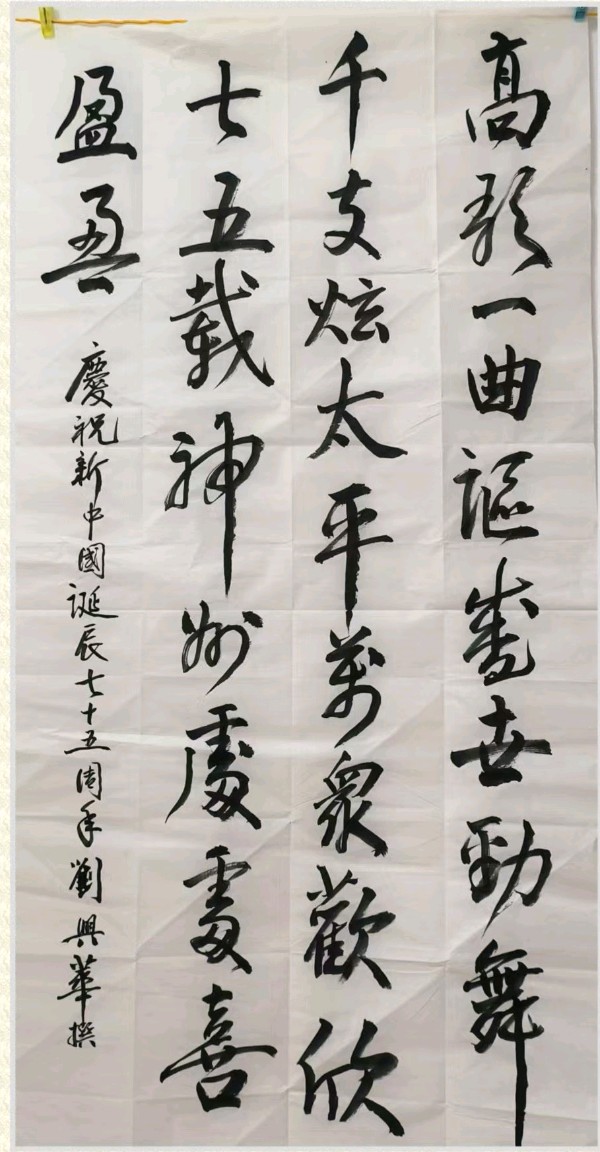 高歌一曲謳盛世勁舞
千支炫太平萬眾歡欣
七五載神州處處喜
盈盈
慶祝新中國誕辰七十五周年劉興華撰